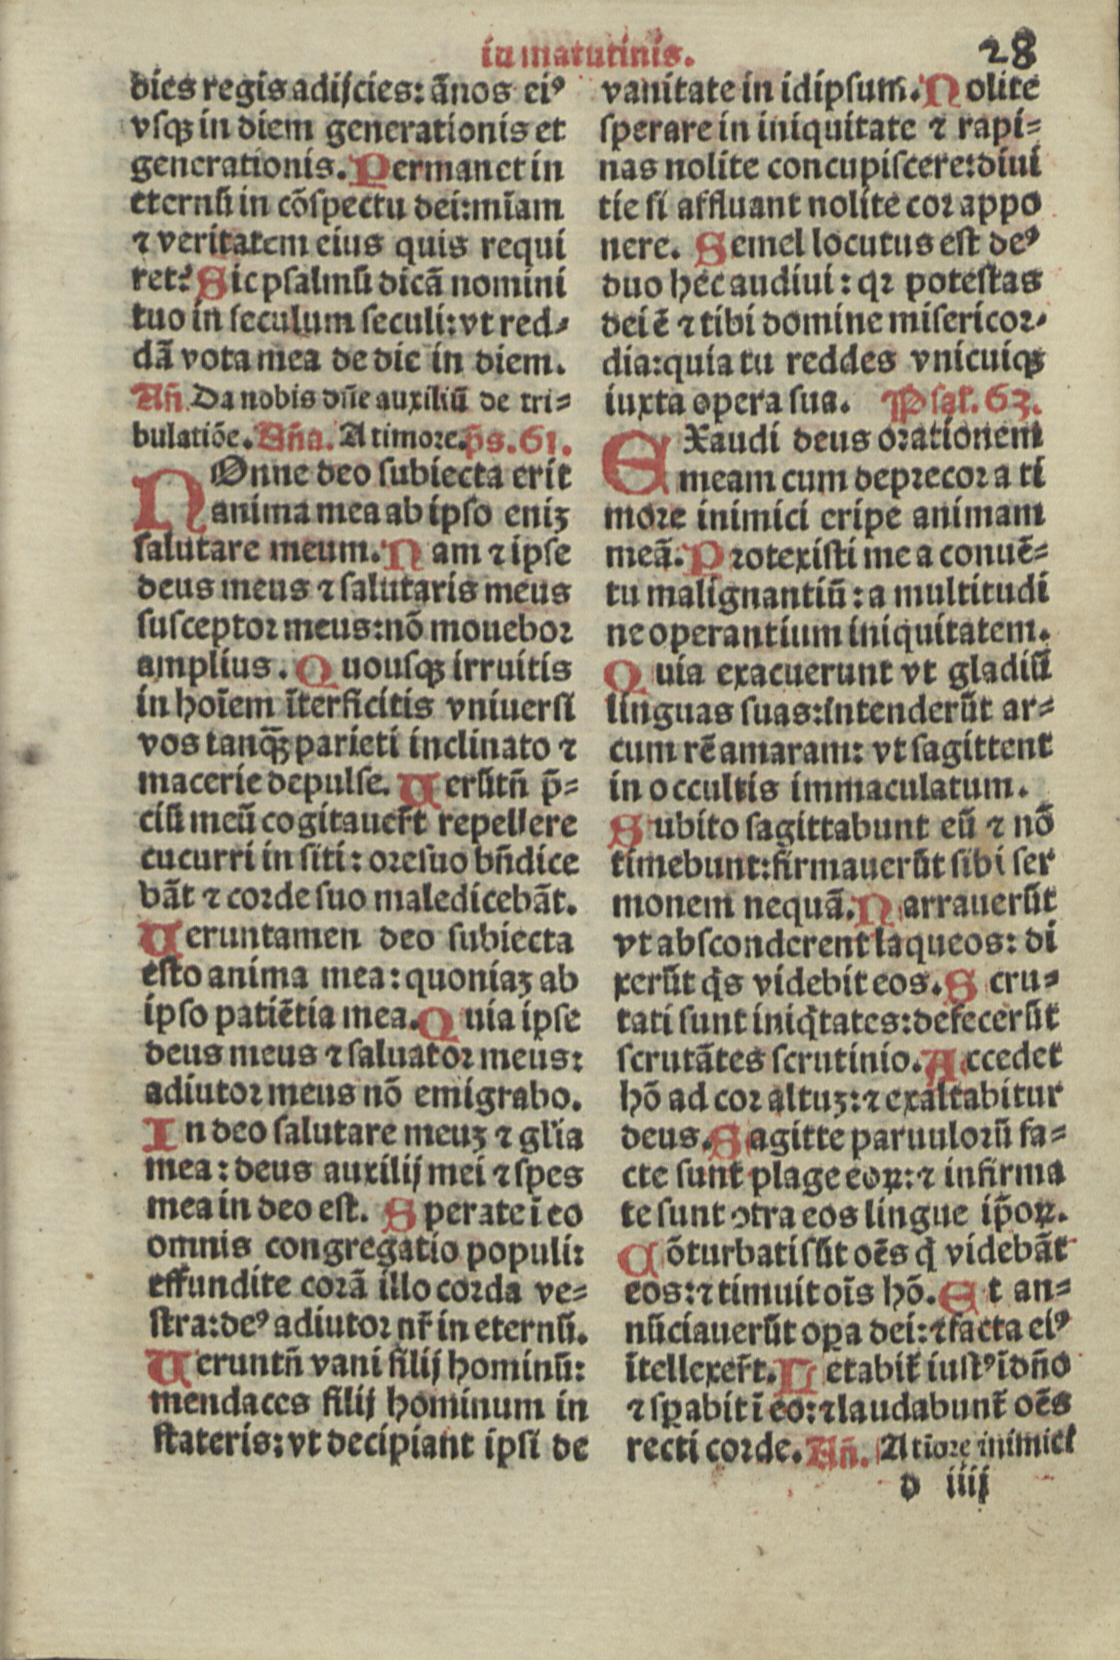 in matutinis.
28
dies regis adijcies: ãnos eiꝰ
vsqꝫ in diem generationis et
generationis. Permanet in
eternũ in cõspectu dei: mĩam
⁊ veritatem eius quis requi
ret? Sic psalmũ dicã nomini
tuo in seculum seculi: vt red⸗
dã vota mea de die in diem.
Añ. Da nobis dñe auxiliũ de tri⸗
bulatiõe. Aña. A timore. p̃s. 61.
NOnne deo subiecta erit
anima mea ab ipso enіꝫ
salutare meum. Nam ⁊ ipse
deus meus ⁊ salutaris meus
susceptor meus: nõ mouebor
amplius. Quousqꝫ irruitis
in hoĩem ĩterficitis vniuersi
vos tanqꝫ̃ parieti inclinato ⁊
macerie depulse. Uerũtñ p̃⸗
ciũ meũ cogitauer̃t repellere
cucurri in siti: ore suo bñdice
bãt ⁊ corde suo maledicebãt.
Ueruntamen deo subiecta
esto anima mea: quoniaꝫ ab
ipso patiẽtia mea. Quia ipse
deus meus ⁊ saluator meus:
adiutor meus nõ emigrabo.
In deo salutare meuꝫ ⁊ gl̃ia
mea: deus auxilij mei ⁊ spes
mea in deo est. Sperate ĩ eo
omnis congregatio populi:
effundite corã illo corda ve⸗
stra: deꝰ adiutor nr̃ in eternũ.
Ueruntñ vani filij hominũ:
mendaces filij hominum in
stateris: vt decipiant ipsi de
vanitate in idipsum. Nolite
sperare in iniquitate ⁊ rapi⸗
nas nolite concupiscere: diui
tie si affluant nolite cor appo
nere. Semel locutus est deꝰ
duo hec audiui: qꝛ potestas
dei ẽ ⁊ tibi domine misericor⸗
dia: quia tu reddes vnicuiqꝫ
iuxta opera sua. Psal̃. 63.
EXaudi deus orationem
meam cum deprecor a ti
more inimici eripe animam
meã. Protexisti me a conuẽ⸗
tu malignantiũ: a multitudi
ne operantium iniquitatem.
Quia exacuerunt vt gladiũ
linguas suas: intenderũt ar⸗
cum rẽ amaram: vt sagittent
in occultis immaculatum.
Subito sagittabunt eũ ⁊ nõ
timebunt: firmauerũt sibi ser
monem nequã. Narrauerũt
vt absconderent laqueos: di
xerũt q̃s videbit eos. Scru⸗
tati sunt iniq̃tates: defecerũt
scrutãtes scrutinio. Accedet
hõ ad cor altuꝫ: ⁊ exaltabitur
deus. Sagitte paruulorũ fa⸗
cte sunt plage eoꝝ: ⁊ infirma
te sunt ↄtra eos lingue ip̃oꝝ.
Cõturbati sũt oẽs q̃ videbãt
eos: ⁊ timuit oĩs hõ. Et an⸗
nũciauerũt oꝑa dei: ⁊ facta eiꝰ
ĩtellexer̃t. Letabit̃ iustꝰ ĩ dño
⁊ sꝑabit ĩ eo: ⁊ laudabunt̃ oẽs
recti corde. Añ. A tiore inimici
d iiij